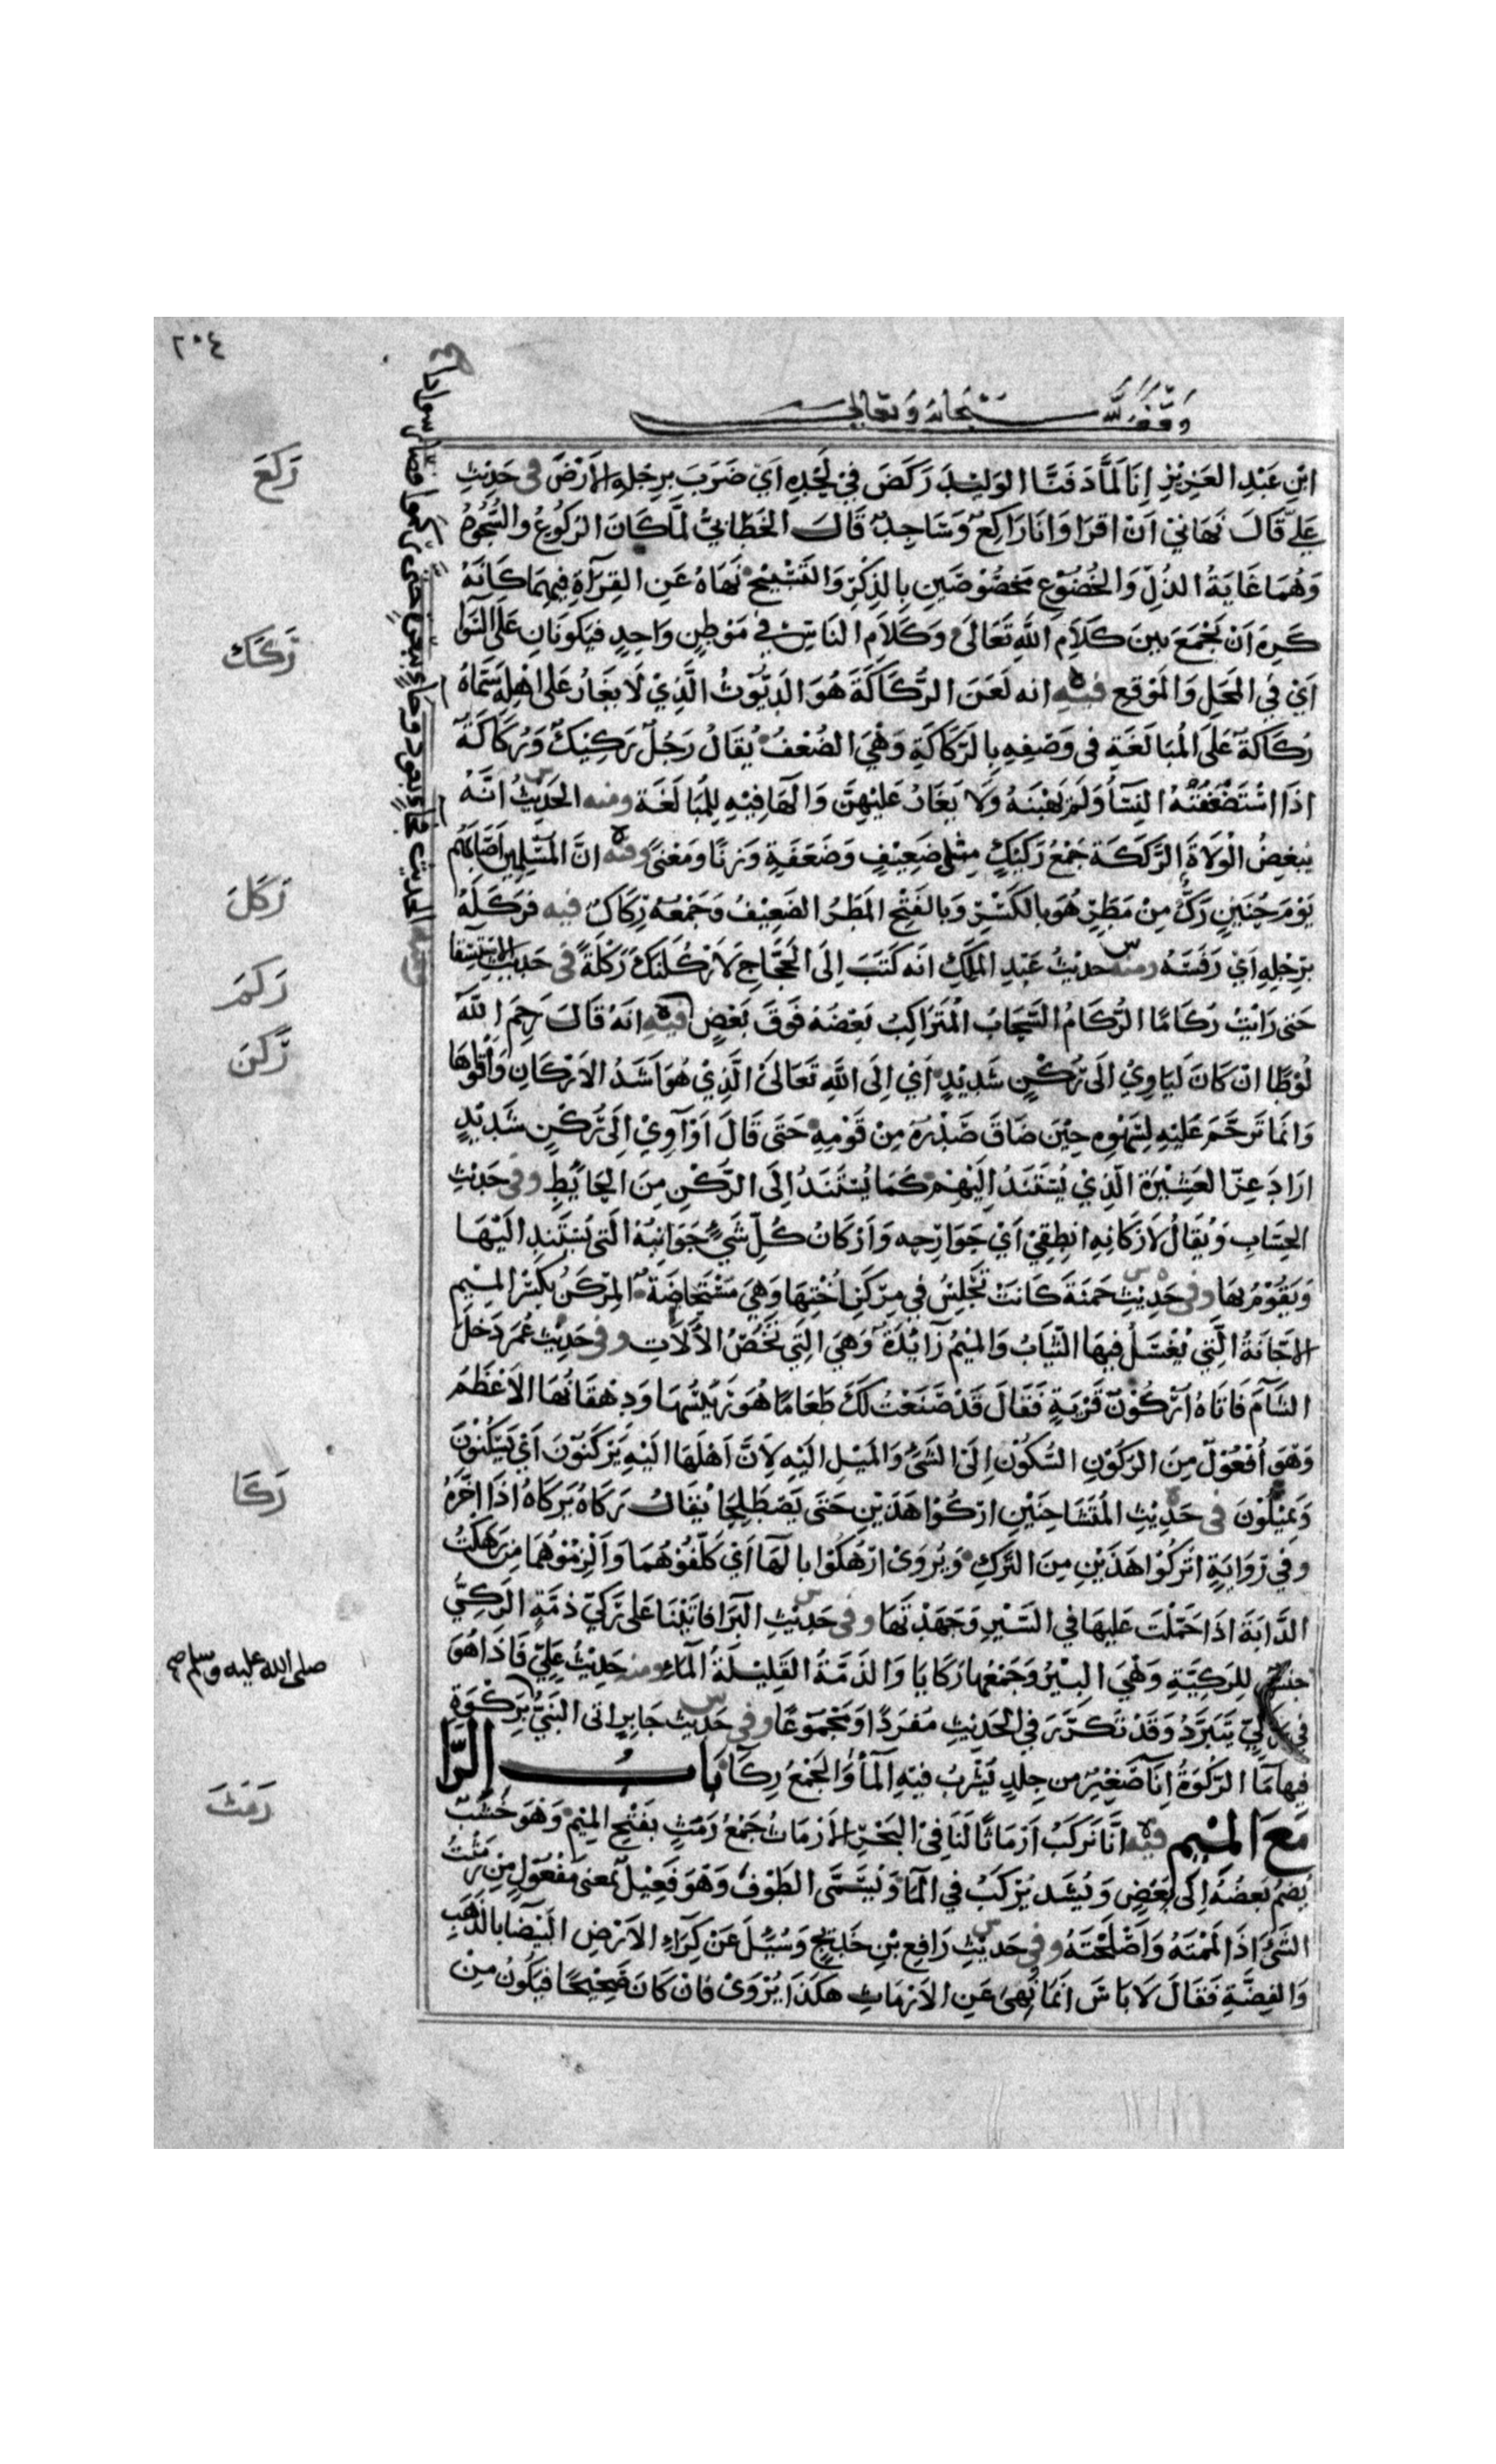 ٢٠٤
وقف لله سبحانه وتعالى
ابْنِ عَبْدِ العَزِيْزِ اِنَا لَمَّا دَفَنَّا الوَلِيْدَ رَكَضَ فِيْ لَحْدِهِ اَيْ ضَرَبَ بِرِجْلِهِ الاَرْضَ فى حَدِيْثِ
عَلِيٍّ قَالَ نَهَانِيْ اَنْ اَقْرَا وَاَنَا رَاكِعٌ وَسَاجِدٌ قَالَ الخَطَّابِيُّ لَمَّا كَانَ الرُكُوْعُ وَالسُّجُوْدُ
وَهُمَا غَايَةُ الذُلِّ وَالخُضُوْعِ مَخْصُوْصَيْنِ بِالذِكْرِ وَالتَسْبِيْحِ نَهَاهُ عَنِ القِرَآةِ فِيْهِمَا كَاَنَّهُ
كَرِهَ اَنْ يَجْمَعَ بَيْنَ كَلَامِ اللهِ تَعَالَى وَكَلَامِ النَاسِ فِي مَوْطِنٍ وَاحِدٍ فَيَكُونَانِ عَلَى السَّوَا
اَيْ فِي المَحَلِ وَالمَوْقِعِ فيه انه لَعَنَ الرُّكَاكَةَ هُوَ الدَيُّوْثُ الَّذِيْ لَا يَغَارُ عَلَى اهْلِهِ سَمَّاهُ
رُكَاكَةً عَلَى المُبَالَغَةِ فى وَصْفِهِ بِالرَّكَاكَةِ وَهِيَ الضُعْفُ يُقَالُ رَجُلٌ رَكِيْكٌ وَرُكَاكَةٌ
اذَا اسْتَضْعَفَتْهُ النِسَآءُ وَلَمْ يَهَبْنَهُ وَلَا يَغَارُ عَلَيْهِنَّ وَالهَا فِيْهِ لِلْمُبَالَغَة ومنه الحَدِيْثُ انَّهُ
يُبغِضُ الْوُلَاةَ الرَّكَكَةَ جَمْعُ رَكِيْكٍ مِثْل ضَعِيْفٍ وَضَعَفَةٍ وَزنًا وَمَعْنىً ومنه انَّ المُسْلِمِيْنَ اَصَابَهُمْ
يَوْمَ حُنَيْنٍ رَكٌّ مِنْ مَطَرٍ هُوَ بِالكَسْرِ وَبِالفَتْحِ المَطَرُ الضَعِيْفُ وَجَمْعُهُ رِكَاكٌ فيه فَرَكَلَهُ
بِرِجْلِهِ اَيْ رَفَسَهُ ومنه حديْثُ عَبْدِ المَلِكِ انَه كَتَبَ اِلَى الحَجَّاجِ لَاَرْكُلَنَّكَ رَكْلَةً فى حَدِيْث الاسْتِسْقَا
حَتى رَاَيْتُ رُكَامًا الرُكَامُ السَّحَابُ المُتَرَاكِبُ بَعْضُهُ فَوْقَ بَعْضٍ فيه اَنَهُ قَالَ رَحِمَ اللهُ
لُوْطًا انْ كَانَ لَيَاوِيْ اِلَى رُكْنٍ شَدِيْدٍ اَيْ اِلَى اللهِ تَعَالَى الَّذِيْ هُوَ اَشَدُ الاَرْكَانِ وَاَقْوَاهَا
وَانَمَا تَرَحَّمَ عَلَيْهِ لِسَهْوِهِ حِيْنَ ضَاقَ صَدْرُهُ مِنْ قَوْمِهِ حَتَى قَالَ اَوْ آوِيْ اِلَى رُكْنٍ شَدِيْدٍ
ارَادَ عِزَّ العَشِيْرَةِ الَّذِيْ يُسْتَنَدُ اِلَيْهِمْ كَمَا يُسْتَنَدُ اِلَى الرُّكْنِ مِنَ الحَائِطِ وفى حَدِيْثِ
الحِسَابِ وَيُقَالُ لِاَرْكَانِهِ انْطِقِيْ اَيْ جَوَارِحِه وَاَرْكَانُ كُلِّ شَيءٍ جَوَانِبُهُ الَتى يَسْتَنِد الَيْهَا
وَيَقُوْمُ بِهَا وفى حَدِيْثِ حَمْنَةَ كَانَتْ تَجْلِسُ فِي مِرْكَنِ اُخْتِهَا وَهِيَ مُسْتَحَاضَةٌ المِرْكَنُ بِكَسْرِ المِيْمِ
الاِجَّانَةُ الَّتِيْ يُغْسَلُ فِيْهَا الثِّيَابُ وَالمِيْمُ زَآئِدَةٌ وَهِيَ الَتِيْ تَخُصُّ الاٰلَاتِ وفى حَدِيْثِ عُمَرَ دَخَلَ
الشَّآمَ فَاَتَاهُ اُرْكُوْنُ قَرْيَةٍ فَقَالَ قَدْ صَنَعْتُ لَكَ طَعَامًا هُوَ رَئِيْسُهَا وَدِهْقَانُهَا الاَعْظَمُ
وَهْوَ اُفْعُوْلٌ مِنَ الرُكُوْنِ السُكُوْن اِلَى الشَيْءِ وَالمَيْلِ الَيْهِ لِاَنَّ اَهْلَهَا الَيْهِ يَرْكَنُوْنَ اَيْ يَسْكُنُوْنَ
وَيَمِيْلُوْنَ فى حَدِيْثِ المُتَشَاحِنَيْنِ ارْكُوْا هَذَيْنِ حَتَى يَصْطَلِحَا يُقَالُ رَكَاهُ يَرْكَاهُ اذَا اخَّرَهُ
وفِي رِوَايَةٍ اتْرُكُوْا هَذَيْنِ مِنَ التَّرْكِ وَيُرْوَى ارْهَكُوْا بِالهَا اَيْ كَلِّفُوْهُمَا وَاَلْزِمُوْهُمَا مِنْ رَهَكْتُ
الدَابَةَ اذَا حَمَلْتَ عَلَيهَا في السَّيْرِ وَجَهَدْتَهَا وفى حَدِيْثِ البَرَا فَاَتَيْنَا عَلَى رَكِيٍّ ذمَّةٍ الرَكِيُّ
جنسٌ لِلرَكِيَّةِ وَهِيَ البِيْرُ وَجَمْعُها رَكَايَا وَالذَمَّةُ القَلِيْلَةُ المَآءِ ومنه حَدِيْثُ عَلِيّ فَاِذَا هُوَ
فِي رَكِيٍّ يَتَبَرَّدُ وَقَدْ تَكَرَّرَ فِي الحَدِيْثِ مُفْرَدًا وَمَجْمُوْعًا وفى حَدِيْث جَابِرٍ اتى النَبِيُّ بِرَكْوَةٍ
فِيهَا مَا الرَّكْوَةُ اِنَآ صَغِيْرٌ مِن جِلْدٍ يُشْرَبُ فِيْهِ المَآءُ وَالجَمْعُ رِكَآ بَابُ الرَّا
مَعَ المِيْم فيه اِنَّا نَرْكَبُ اَرْمَاثًا لَنَا فِيْ البَحْرِ الاَرْمَاثُ جَمْعُ رَمَثٍ بِفَتْحِ المِيْمِ وَهُوَ خَشَبٌ
يُضَمُّ بَعْضُهُ اِلى بَعْضٍ وَيُشَد يُرْكَبُ فِي المَآ وَيُسَمَّى الطَوْفُ وَهْوَ فَعِيْلٌ بمَعنى مَفْعُوْلٍ مِنْ رَمَثْتُ
الشَيْءَ اذَا لَمَمْتَهُ وَاَصْلَحْتَهُ وفي حَدِيْثِ رَافِعِ بْنِ خَدِيْجٍ وَسُئِلَ عَنْ كِرَآءِ الاَرْضِ البَيْضَا بِالذَهَبِ
وَالفِضَّةِ فَقَالَ لَا بَاسَ اِنَمَا نُهِىَ عَنِ الاَرْمَاثِ هكَذَا يُرْوَىْ فَاِنْ كَانَ صَحِيْحًا فَيَكُونُ مِنْ
رَكَعَ
رَكَكَ
رَكَلَ
رَكَمَ
رَكَنَ
رَكَا
صلى الله عليه وسلم صح
رَمَثَ